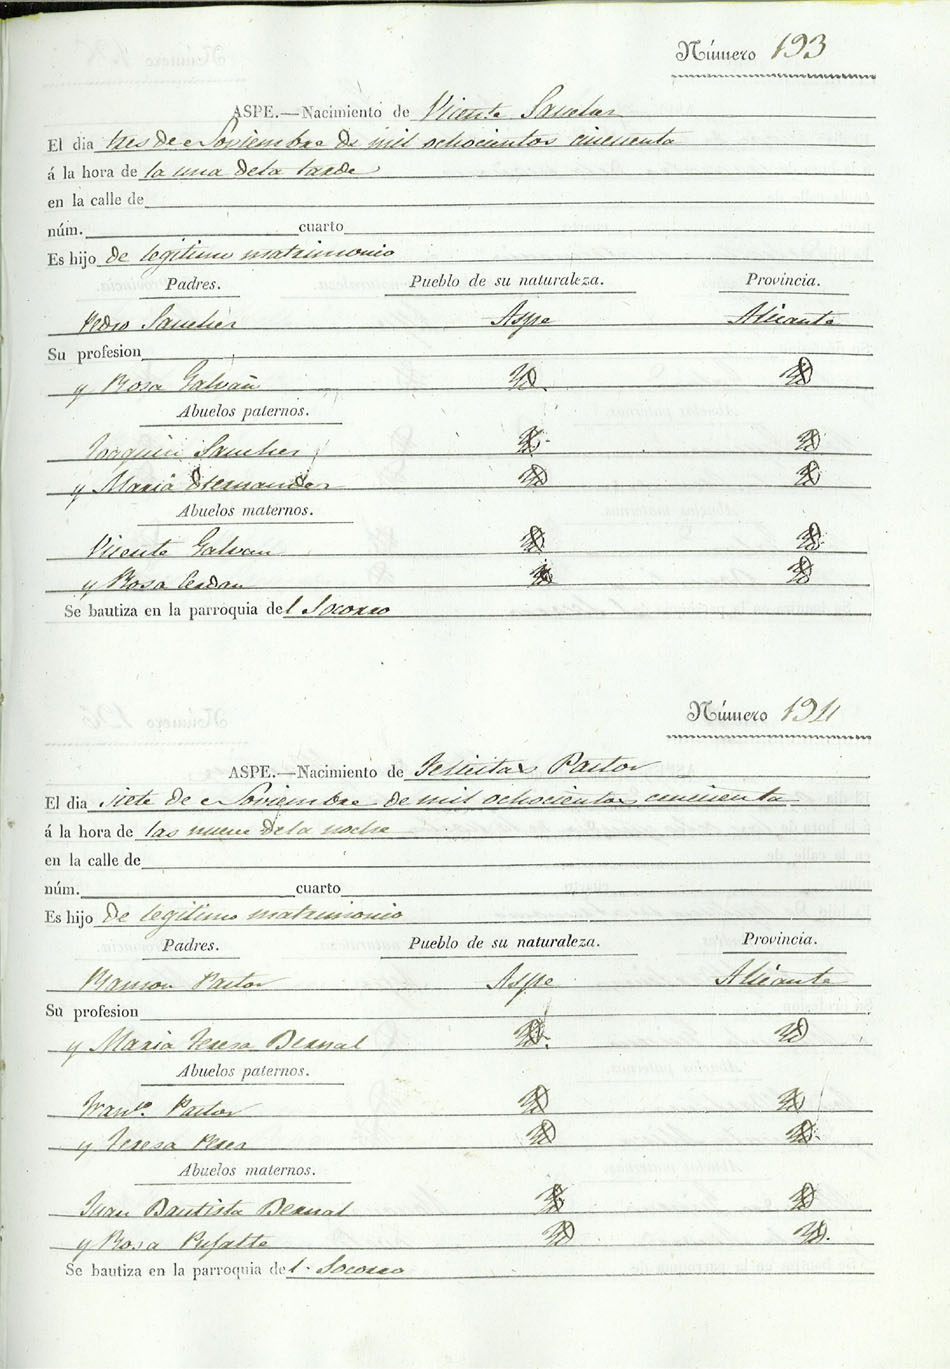 Número 193
ASPE.—Nacimiento de Vicente Sanches
El dia tres de Noviembre de mil ochocientos cincuenta
á la hora de la una dela tarde
en la calle de
núm. cuarto
Es hijo de legitimo matrimonio
Padres. Pueblo de su naturaleza. Provincia.
Pedro Sanches Aspe Alicante
Su profesion
y Rosa Galvañ
Abuelos paternos.
Joaquin Sanches
y Maria Hernandes
Abuelos maternos.
Vicente Galvan
y Rosa Cerdan
Se bautiza en la parroquia del Socorro
Número 194
ASPE.—Nacimiento de Felicitas Pastor
El dia siete de Noviembre de mil ochocientos cincuenta
á la hora de las nueve dela noche
en la calle de
núm. cuarto
Es hijo de legitimo matrimonio
Padres. Pueblo de su naturaleza. Provincia.
Ramon Pastor Aspe Alicante
Su profesion
y Maria Teresa Bernal
Abuelos paternos.
Franco. Pastor
y Teresa Peres
Abuelos maternos.
Juan Bautista Bernal
y Rosa Pujalte
Se bautiza en la parroquia del Socorro